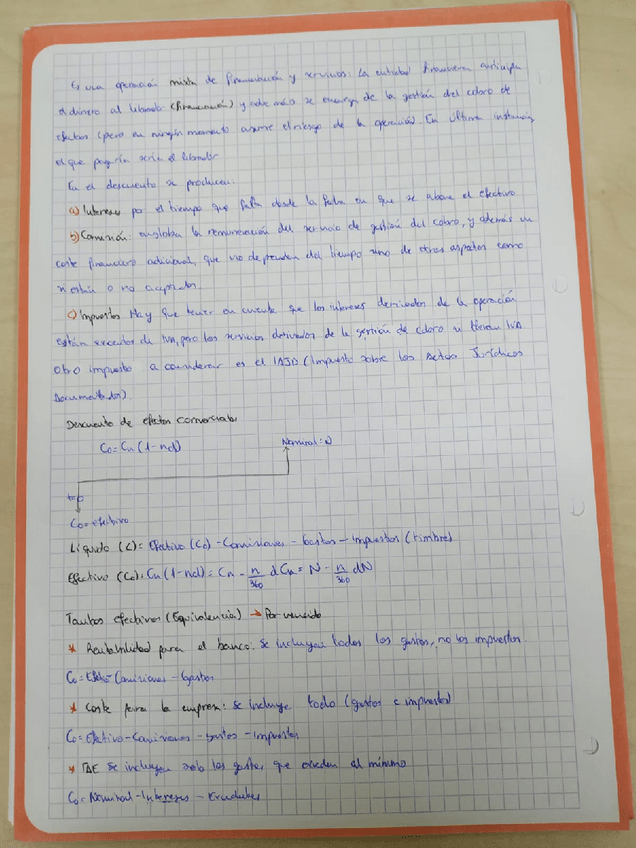 Es una operación mixta de financiación y servicios. La entidad financiera anticipa
el dinero al librador (financiación) y además se encarga de la gestión del cobro de
efectos (pero en ningún momento asume el riesgo de la operación). En última instancia,
el que pagaría sería el librador
En el descuento se producen:
a) Intereses por el tiempo que falta desde la fecha en que se abona el efectivo
b) Comisión: engloba la remuneración del servicio de gestión del cobro, y además un
coste financiero adicional, que no dependen del tiempo sino de otros aspectos como
si están o no aceptados.
c) Impuestos Hay que tener en cuenta que los intereses derivados de la operación
están exentos de IVA, pero los servicios derivados de la gestión de cobro si tienen IVA
Otro impuesto a considerar es el IAJD (Impuesto sobre los Actos Jurídicos
Documentados)
Descuento de efectos comerciales
C₀ = Cn (1 - nd)
Nominal = N
t=0
C₀ = efectivo
Líquido (L) = Efectivo (C₀) - Comisiones - Gastos - Impuestos (timbre)
Efectivo (C₀) = Cn (1 - nd) = Cn - n/360 d Cn = N - n/360 dN
Tantos efectivos (Equivalencia) → Por vencido
* Rentabilidad para el banco. Se incluyen todos los gastos, no los impuestos.
C₀ = Efect - Comisiones - Gastos
* Coste para la empresa: Se incluye todo (gastos e impuestos)
C₀ = Efectivo - Comisiones - gastos - Impuestos
* TAE Se incluyen solo los gastos que exceden al mínimo
C₀ = Nominal - Intereses -